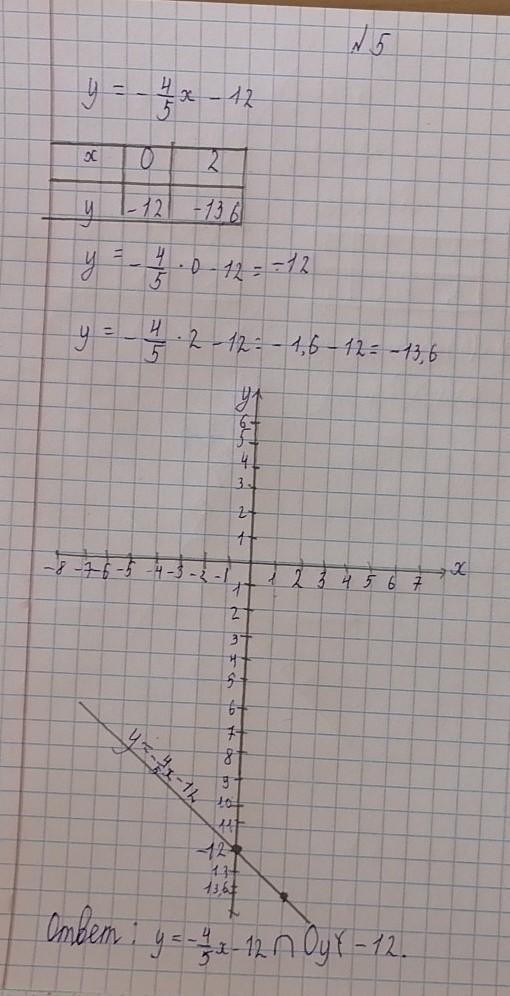 №5
y = -4/5 x - 12
x 0 2
y -12 -13,6
y = -4/5 · 0 - 12 = -12
y = -4/5 · 2 - 12 = -1,6 - 12 = -13,6
y
6
5
4
3
2
1
-8 -7 -6 -5 -4 -3 -2 -1 1 2 3 4 5 6 7 x
1
2
3
4
5
6
7
y = -4/5 x - 12
8
9
10
11
-12
13
13,6
Ответ: y = -4/5 x - 12 ∩ Oy { -12.